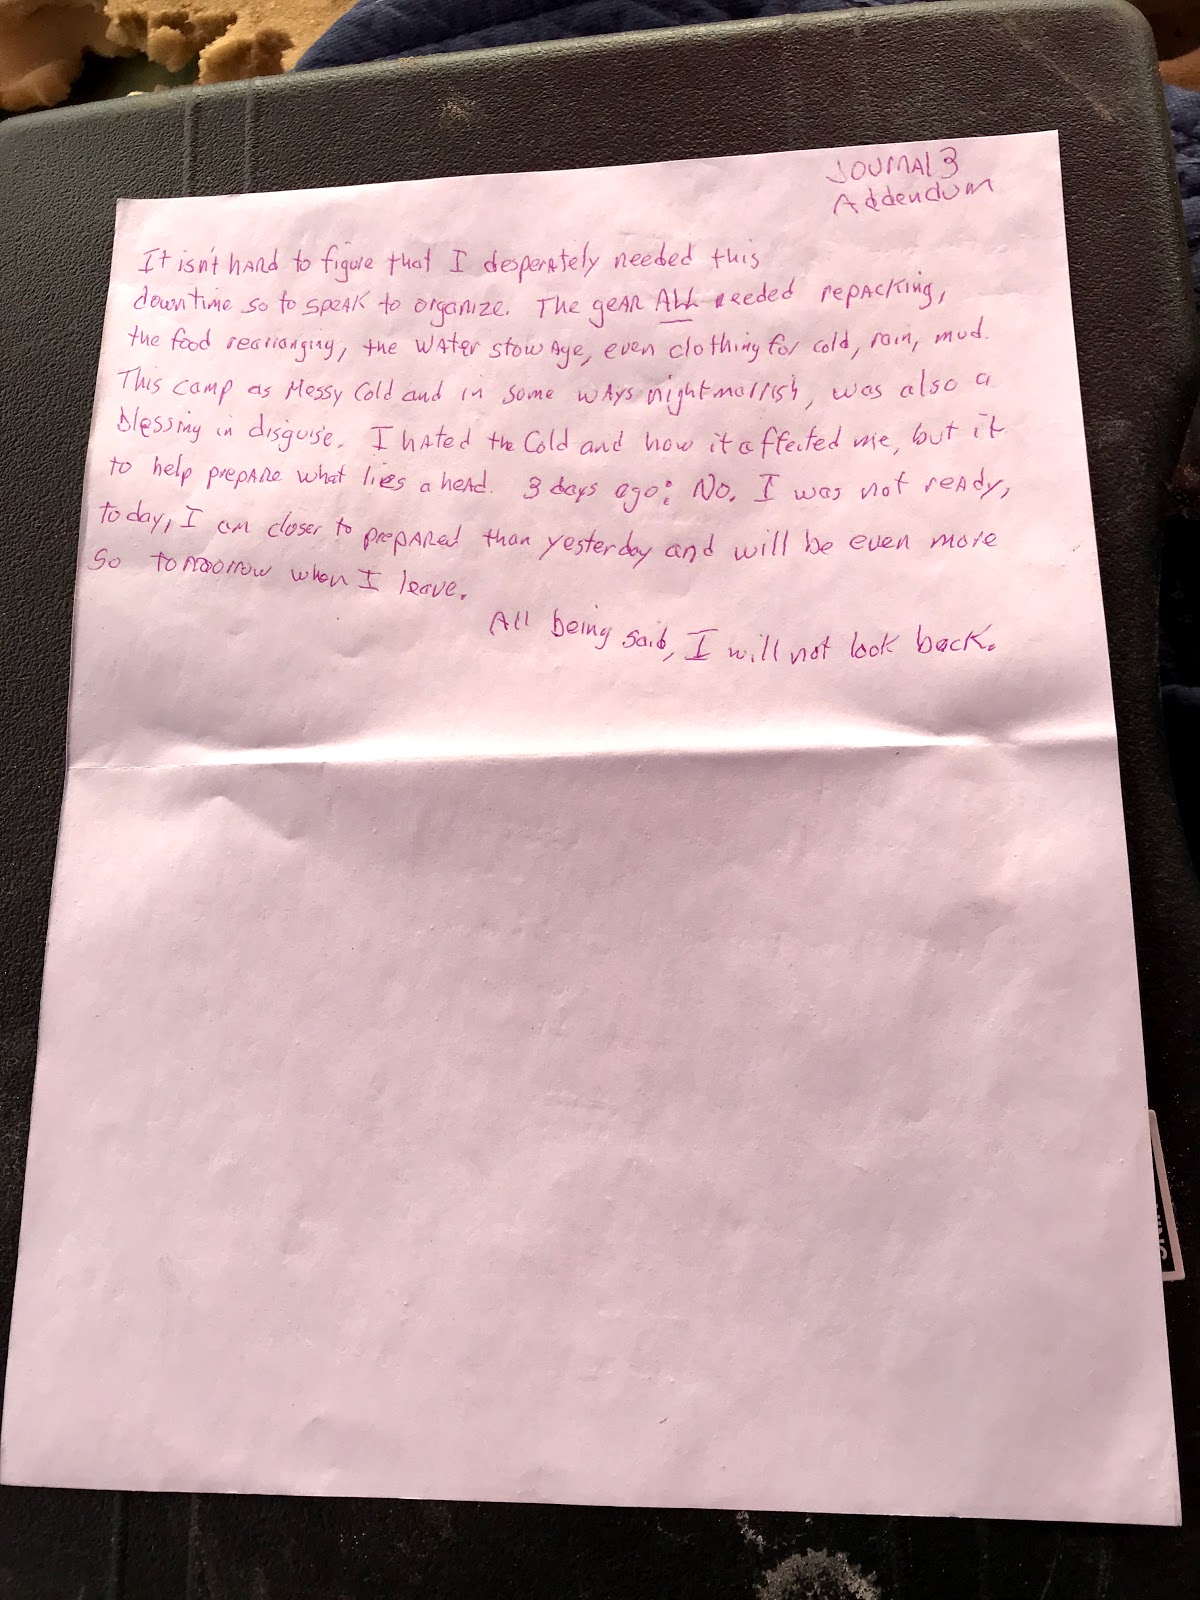 JOURNAL 3
Addendum
It isn't hard to figure that I desperately needed this
downtime so to speak to organize. The gear ALL needed repacking,
the food rearranging, the water stowage, even clothing for cold, rain, mud.
This camp as Messy Cold and in some ways nightmarrish, was also a
blessing in disguise. I hated the Cold and how it affected me, but it
to help prepare what lies ahead. 3 days ago: No. I was not ready,
today, I am closer to prepared than yesterday and will be even more
so tomoorrow when I leave.
All being said, I will not look back.